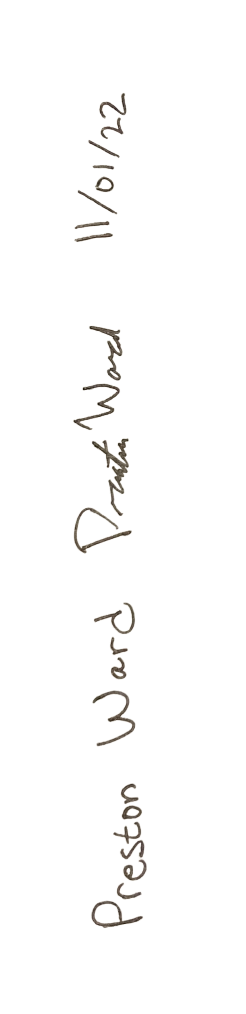 Preston Ward Preston Ward 11/01/22